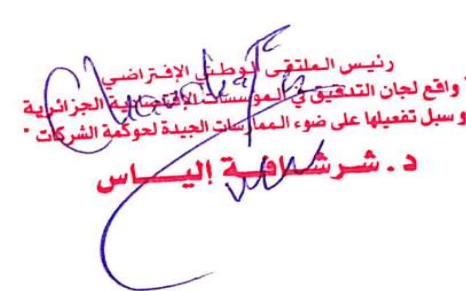 رئيس الملتقى الوطني الإفتراضي
" واقع لجان التدقيق في المؤسسات الإقتصادية الجزائرية
و سبل تفعيلها على ضوء الممارسات الجيدة لحوكمة الشركات "
د. شرشافة إلياس